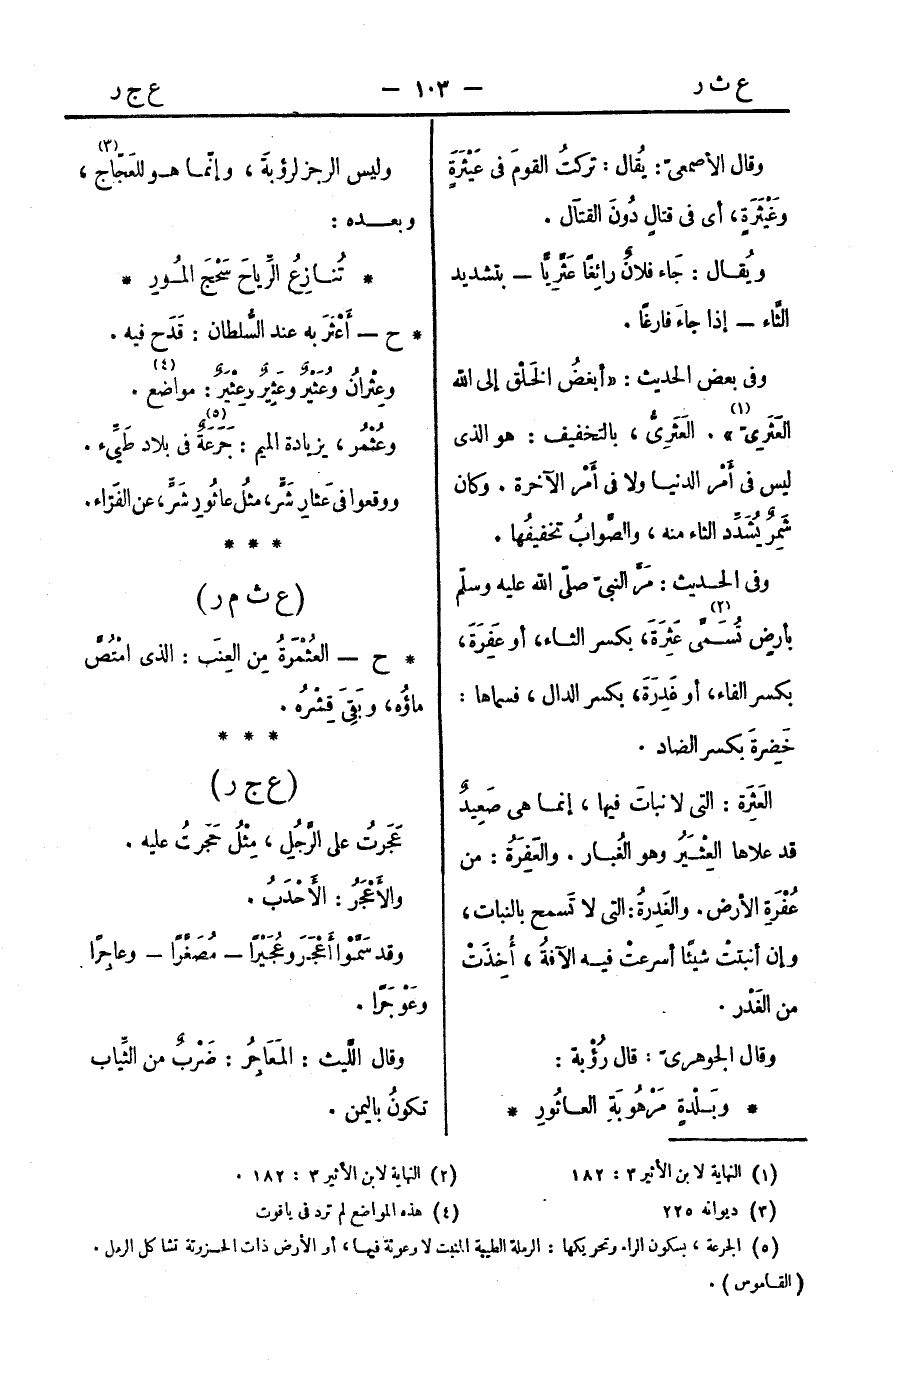 ع ث ر — ١٠٣ — ع ج ر
وقال الأصمعىّ: يُقال: تركتُ القومَ فى عَيْثَرَةٍ
وغَيْثَرَةٍ، أى فى قتالٍ دُونَ القتَال.
ويُقال: جَاء فلانٌ رائِغًا عَثَّرِيًّا – بتشديد
الثَّاء – إذا جاءَ فارغًا.
وفى بعض الحديث: «أبغضُ الخَلْق إلى الله
العَثَرِىّ»(١). العَثَرِىُّ، بالتخفيف: هو الذى
ليس فى أَمْر الدنيا ولا فى أَمْر الآخرة. وكان
شَمِرٌ يُشَدِّد الثاء منه، والصَّوابُ تخفيفُها.
وفى الحديث: مَرَّ النبىّ صلّى الله عليه وسلّم
بأرضٍ تُسَمَّى عَثِرَةَ(٢)، بكسر الثاء، أو عَفِرَةَ،
بكسر الفاء، أو غَدِرَةَ، بكسر الدال، فسماها:
خَضِرةَ بكسر الضاد.
العَثِرَة: التى لا نباتَ فيها، إنما هى صَعِيدٌ
قد علاها العِثْيَرُ وهو الغُبار. والعَفِرَةُ: من
عُفْرَةِ الأرض. والغَدِرةُ: التى لا تَسمح بالنبات،
وإن أنبتتْ شيئًا أسرعتْ فيه الآفةُ، أُخِذَتْ
من الغَدْر.
وقال الجوهرىّ: قال رُؤْبة:
* وبَلْدةٍ مَرْهُوبَةِ العاثُورِ *
وليس الرجز لرؤبةَ، وإنّما هو للعَجّاج(٣)،
وبعده:
* تُنازِعُ الرِّياحَ سَحْجَ المُورِ *
* ح – أَعْثَرَ به عند السُّلطان: قَدَح فيه.
وعِثْرانُ وعُثَيْرٌ وعَثِيرٌ وعِثْيَرٌ(٤): مواضع.
وعُثْمُر، بزيادة الميم: جَرَعَةٌ(٥) فى بلاد طَيِّء.
ووقعوا فى عَثارِ شَرٍّ، مثلُ عاثُورِ شَرٍّ، عن الفرّاء.
* * *
(ع ث م ر)
* ح – العُثْمُرَةُ مِن العِنَب: الذى امتُصَّ
ماؤُه، وبَقِىَ قِشْرُه.
* * *
(ع ج ر)
عَجَرتُ على الرَّجُلِ، مِثْلُ حَجَرتُ عليه.
والأَعْجَرُ: الأَحْدَبُ.
وقد سَمَّوْا أَعْجَرَ وعُجَيْرًا – مُصَغَّرًا – وعاجِرًا
وعَوْجَرًا.
وقال اللَّيث: المَعَاجِرُ: ضَرْبٌ من الثِّياب
تكونُ باليمن.
(١) النهاية لابن الأثير ٣: ١٨٢
(٢) النهاية لابن الأثير ٣: ١٨٢.
(٣) ديوانه ٢٢٥
(٤) هذه المواضع لم ترد فى ياقوت
(٥) الجرعة، بسكون الراء وتحريكها: الرملة الطيبة المنبت لا رعوثة فيها، أو الأرض ذات الحزرتة تشاكل الرمل.
(القاموس).